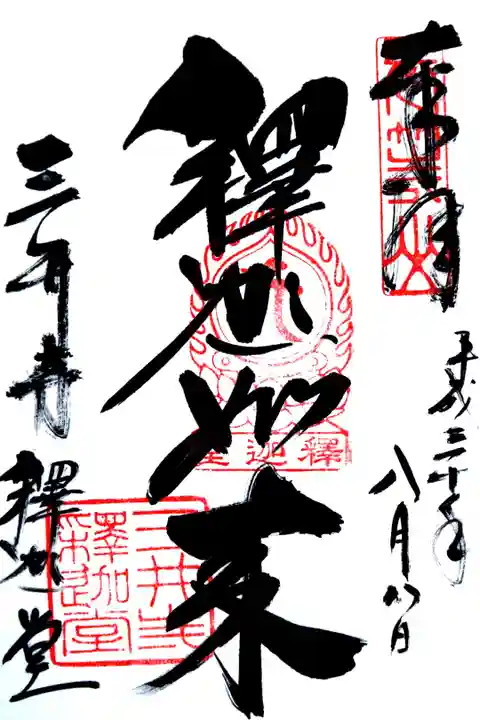 奉拝
平成三十年
八月八日
釋迦如来
釋迦堂
三井寺 釋迦堂
三井寺
釋迦堂